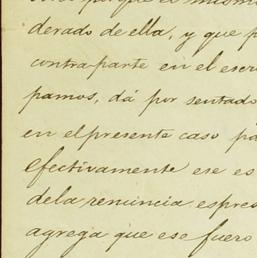 porque el mismo
derado de ella, y que p
contraparte en el escri
pamos, dá por sentado
en el presente caso pa
efectivamente ese es
dela renuncia espres
agrega que ese fuero